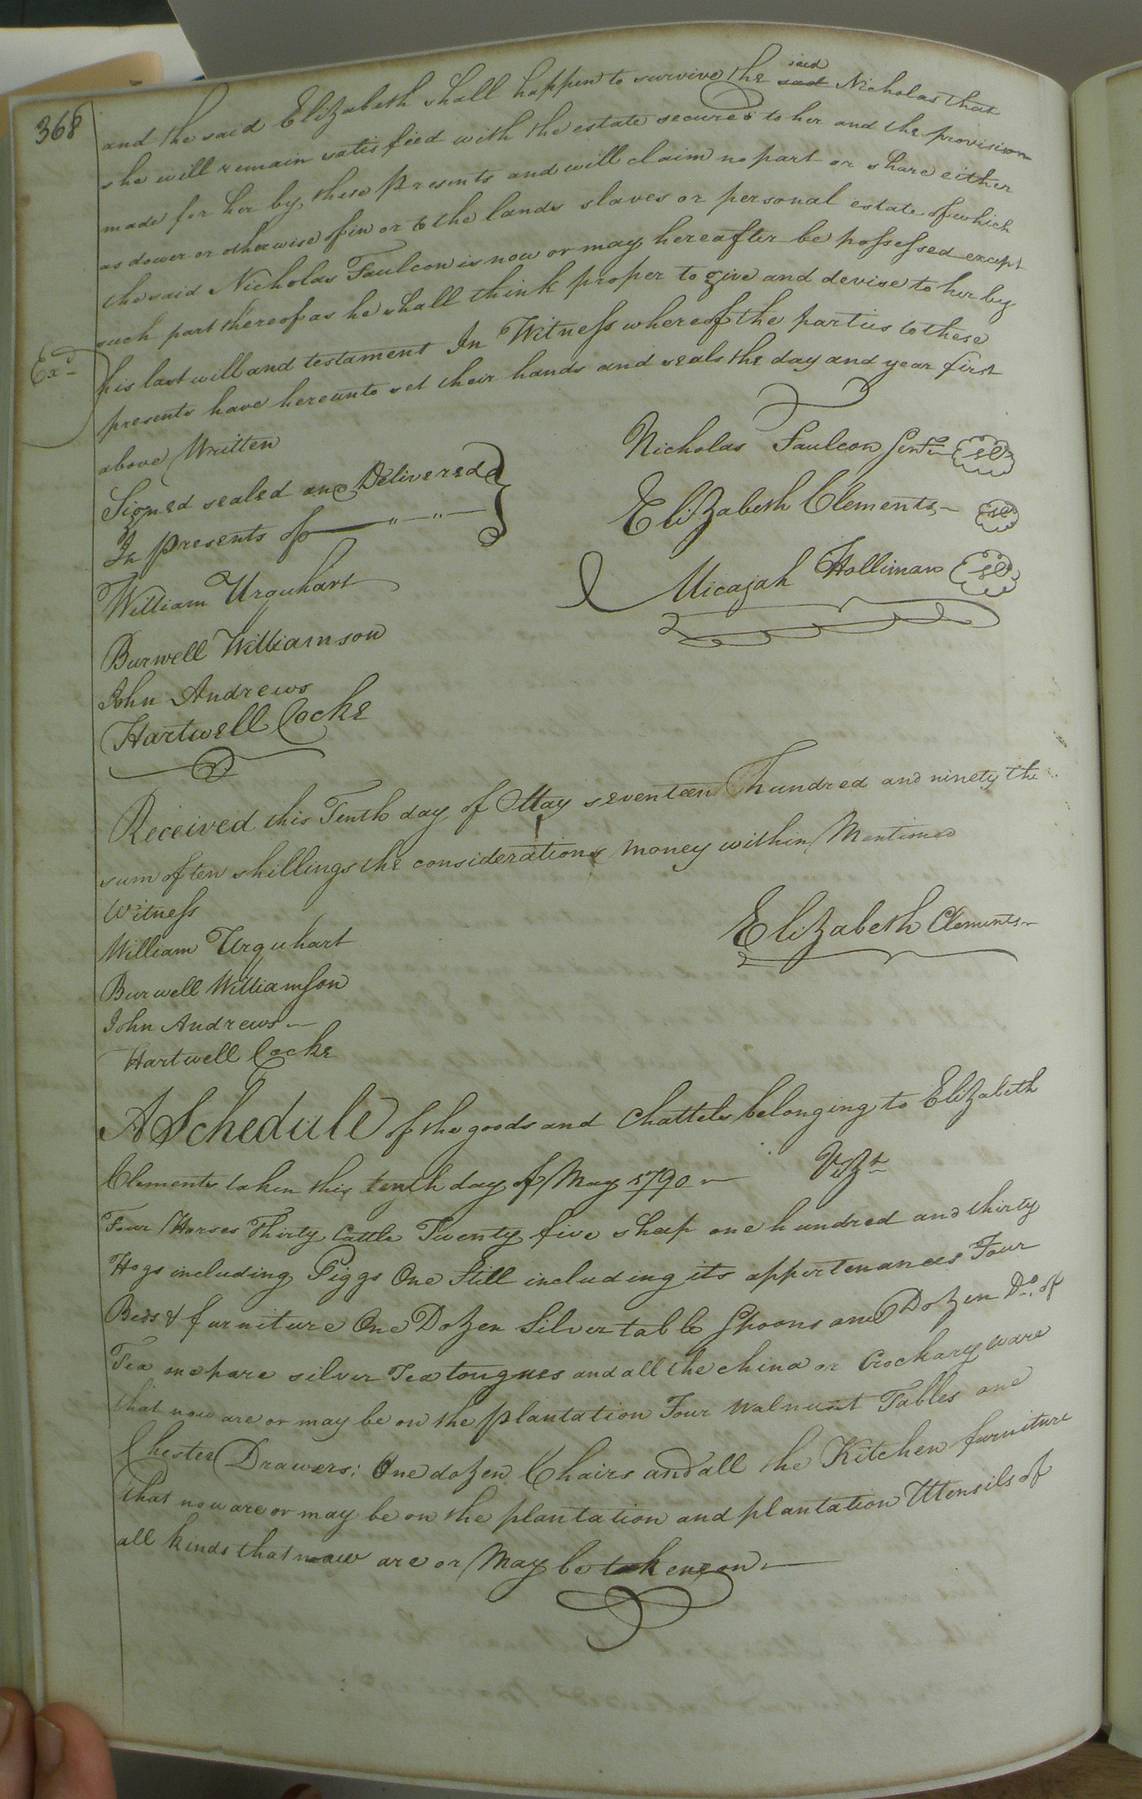 368
and the said Elizabeth shall happen to survive the said Nicholas that
she will remain satisfied with the estate secured to her and the provision
made for her by these Presents and will claim no part or share either
as dower or otherwise of in or to the lands slaves or personal estate of which
the said Nicholas Faulcon is now or may hereafter be possessed except
such part thereof as he shall think proper to give and devise to her by
Exd
his last will and testament In Witness whereof the parties to these
presents have hereunto set their hands and seals the day and year first
above Written
Signed sealed and Delivered
In presents of
Nicholas Faulcon Senr
Elizabeth Clements
Micajah Holliman
William Urquhart
Burwell Williamson
John Andrews
Hartwell Cocke
Received this Tenth day of May seventeen hundred and ninety the
sum of ten shillings the considerations money within Mentioned
Witness
Elizabeth Clements
William Urquhart
Burwell Williamson
John Andrews
Hartwell Cocke
A Schedule of the goods and Chattels belonging to Elizabeth
Clements taken this tenth day of May 1790 Vizt
Four Horses Thirty Cattle Twenty five sheep one hundred and thirty
Hogs including Piggs One Still including its appertenances Four
Beds & furniture One Dozen Silver table Spoons and Dozen Do. of
Tea one pare silver Tea tongues and all the china or Crockary ware
that now are or may be on the plantation Four Walnunt Tables one
Chester Drawers; One dozen Chairs and all the Kitchen furniture
that now are or may be on the plantation and plantation Utensils of
all kinds that now are or May be taken on